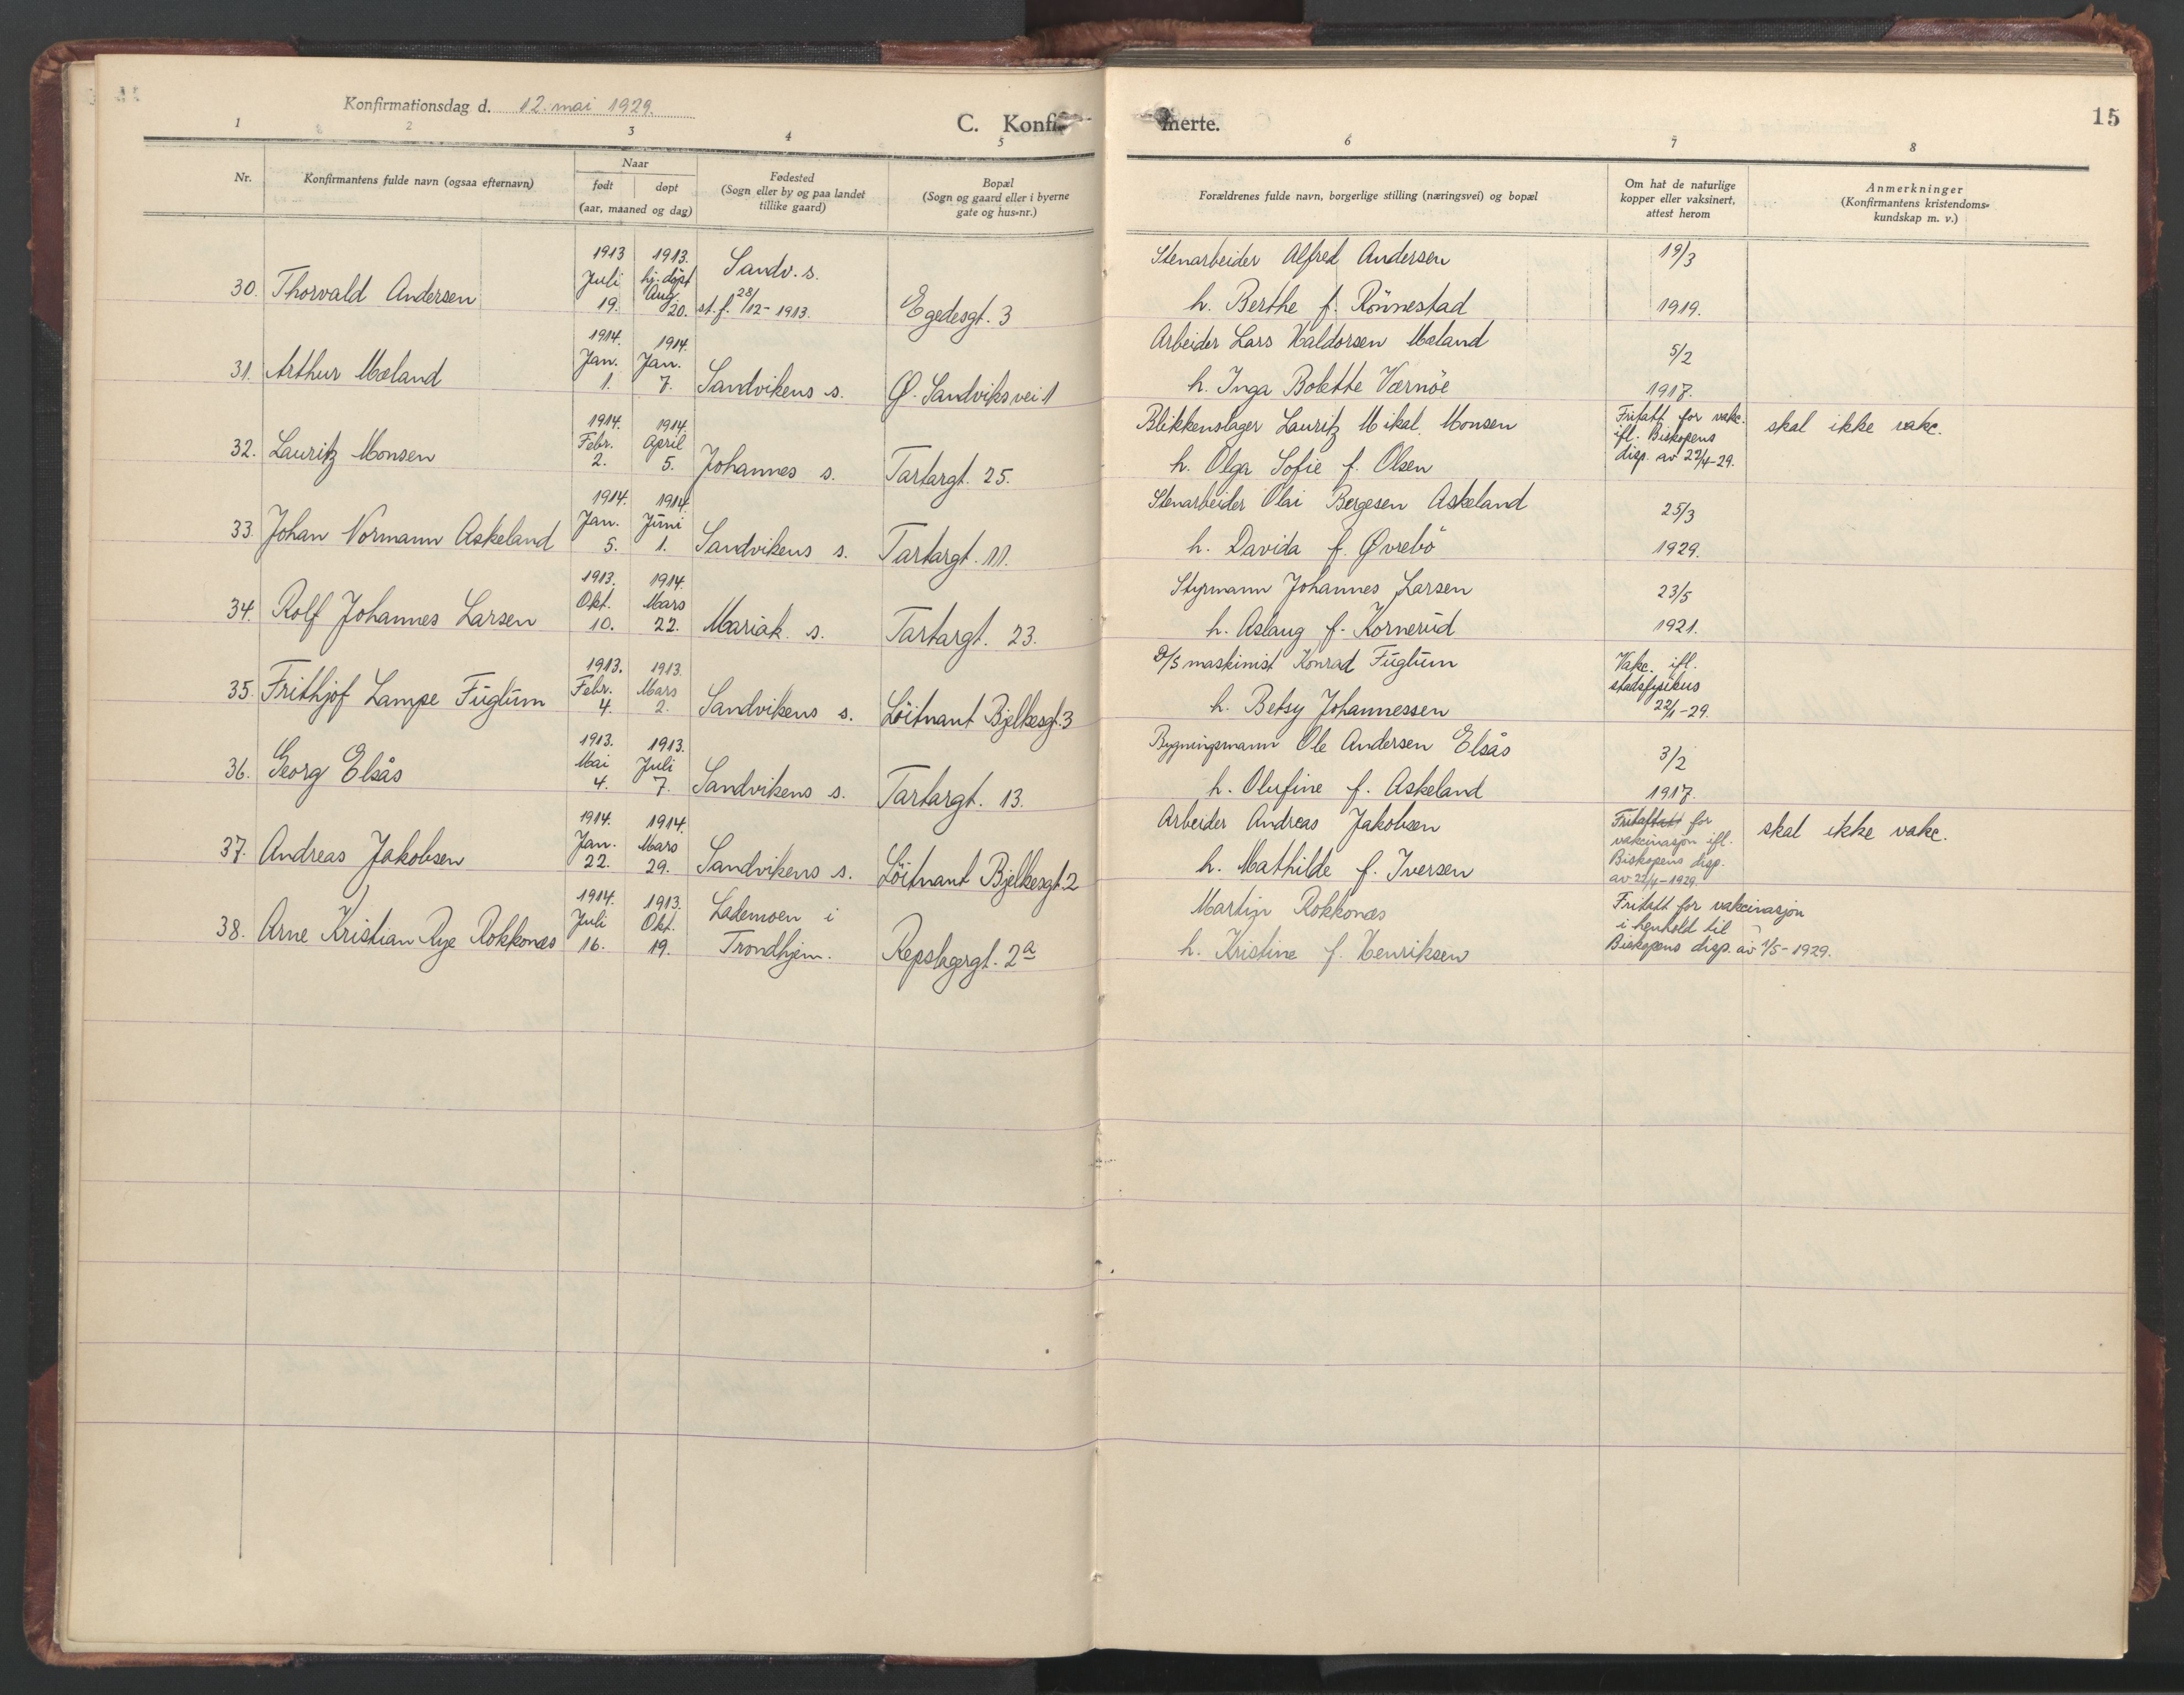 Konfirmationsdag d. 12. mai 1929.
C. Konfirmerte.
15
1 2 3 4 5 6 7 8
Nr.
Konfirmantens fulde navn (ogsaa efternavn)
Naar
født døpt
(aar, maaned og dag)
Fødested
(Sogn eller by og paa landet
tillike gaard)
Bopæl
(Sogn og gaard eller i byerne
gate og hus-nr.)
Forældrenes fulde navn, borgerlige stilling (næringsvei) og bopæl
Om hat de naturlige
kopper eller vaksinert,
attest herom
Anmerkninger
(Konfirmantens kristendoms-
kundskap m. v.)
30. Thorvald Andersen
1913 Juli 19.
1913. hj. døpt Aug 20.
Sandv. s.
st. f. 28/12 - 1913.
Egedesgt. 3
Stenarbeider Alfred Andersen
h. Berthe f. Rönnestad
19/3
1919.
31. Arthur Mæland
1914. Jan. 1.
1914. Jan. 7.
Sandvikens s.
Ø. Sandviksvei 1
Arbeider Lars Haldorsen Mæland
h. Inga Bolette Værnöe
5/2
1917.
32. Lauritz Monsen
1914. Febr. 2.
1914. April 5.
Johannes s.
Tartargt. 25.
Blikkenslager Lauritz Mikal Monsen
h. Olga Sofie f. Olsen
Fritatt for vakc.
ifl. Biskopens
disp. av 22/4-29.
skal ikke vakc.
33. Johan Normann Askeland
1914. Jan. 5.
1914. Juni 1.
Sandvikens s.
Tartargt. 11.
Stenarbeider Olai Bergesen Askeland
h. Davida f. Øvrebö
25/3
1929.
34. Rolf Johannes Larsen
1913. Okt. 10.
1914. Mars 22.
Mariak. s.
Tartargt. 23.
Styrmann Johannes Larsen
h. Aslaug f. Kornerud
23/5
1921.
35. Frithjof Lampe Fuglum
1913. Febr. 4.
1913. Mars 2.
Sandvikens s.
Löitnant Bjelkesgt. 3
D/S maskinist Konrad Fuglum
h. Betsy Johannessen
Vakc. ifl.
stadsfysikus
22/1-29.
36. Georg Elsås
1913. Mai 4.
1913. Juli 7.
Sandvikens s.
Tartargt. 13.
Bygningsmann Ole Andersen Elsås
h. Olufine f. Askeland
3/2
1917.
37. Andreas Jakobsen
1914. Jan. 22.
1914. Mars 29.
Sandvikens s.
Löitnant Bjelkesgt. 2
Arbeider Andreas Jakobsen
h. Mathilde f. Iversen
for
vakcinasjon ifl.
Biskopens disp.
av 22/4-1929.
skal ikke vakc.
38. Arne Kristian Rye Rokkonæs
1914. Juli 16.
1913. Okt. 19.
Lademoen i
Trondhjem.
Repslagergt. 2a
Martin Rokkonæs
h. Kristine f. Henriksen
Fritatt for vakcinasjon
i henhold til
Biskopens disp. av 1/5-1929.